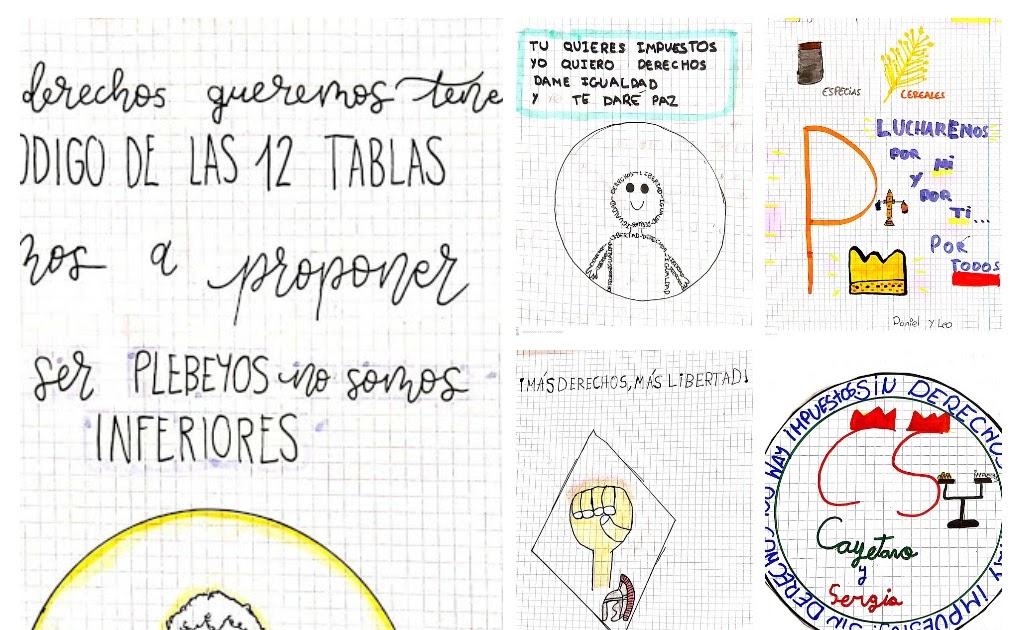 derechos queremos tene
ODIGO DE LAS 12 TABLAS
mos a proponer
ser PLEBEYOS no somos
INFERIORES
TU QUIERES IMPUESTOS
YO QUIERO DERECHOS
DAME IGUALDAD
Y TE DARÉ PAZ
ESPECIAS
CEREALES
P
LUCHARENOS
POR MI
Y
POR
TI...
POR
TODOS
Daniel y Leo
¡MÁS DERECHOS, MÁS LIBERTAD!
NO WAY IMPUESTOS SIN DERECHOS
CS
Cayetano
y
Sergio